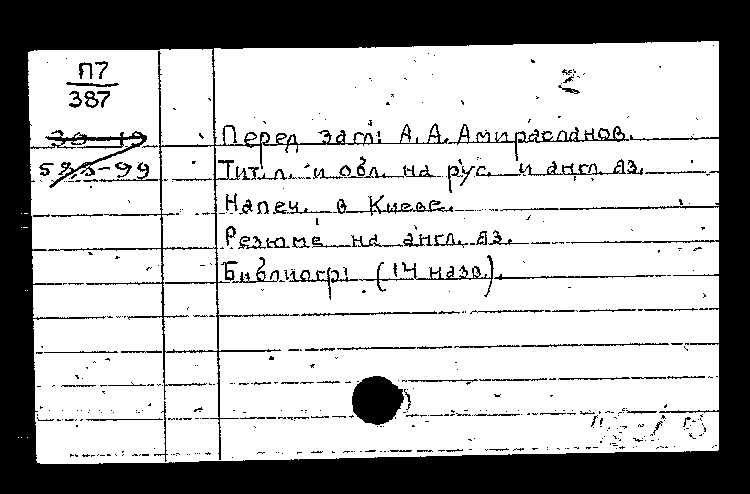 П7
387
2
30-19
533-99
Перед загл: А. А. Амирасланов.
Тит. л. и обл. на рус. и англ. яз.
Напеч. в Киеве.
Резюме на англ. яз.
Библиогр: (14 назв).